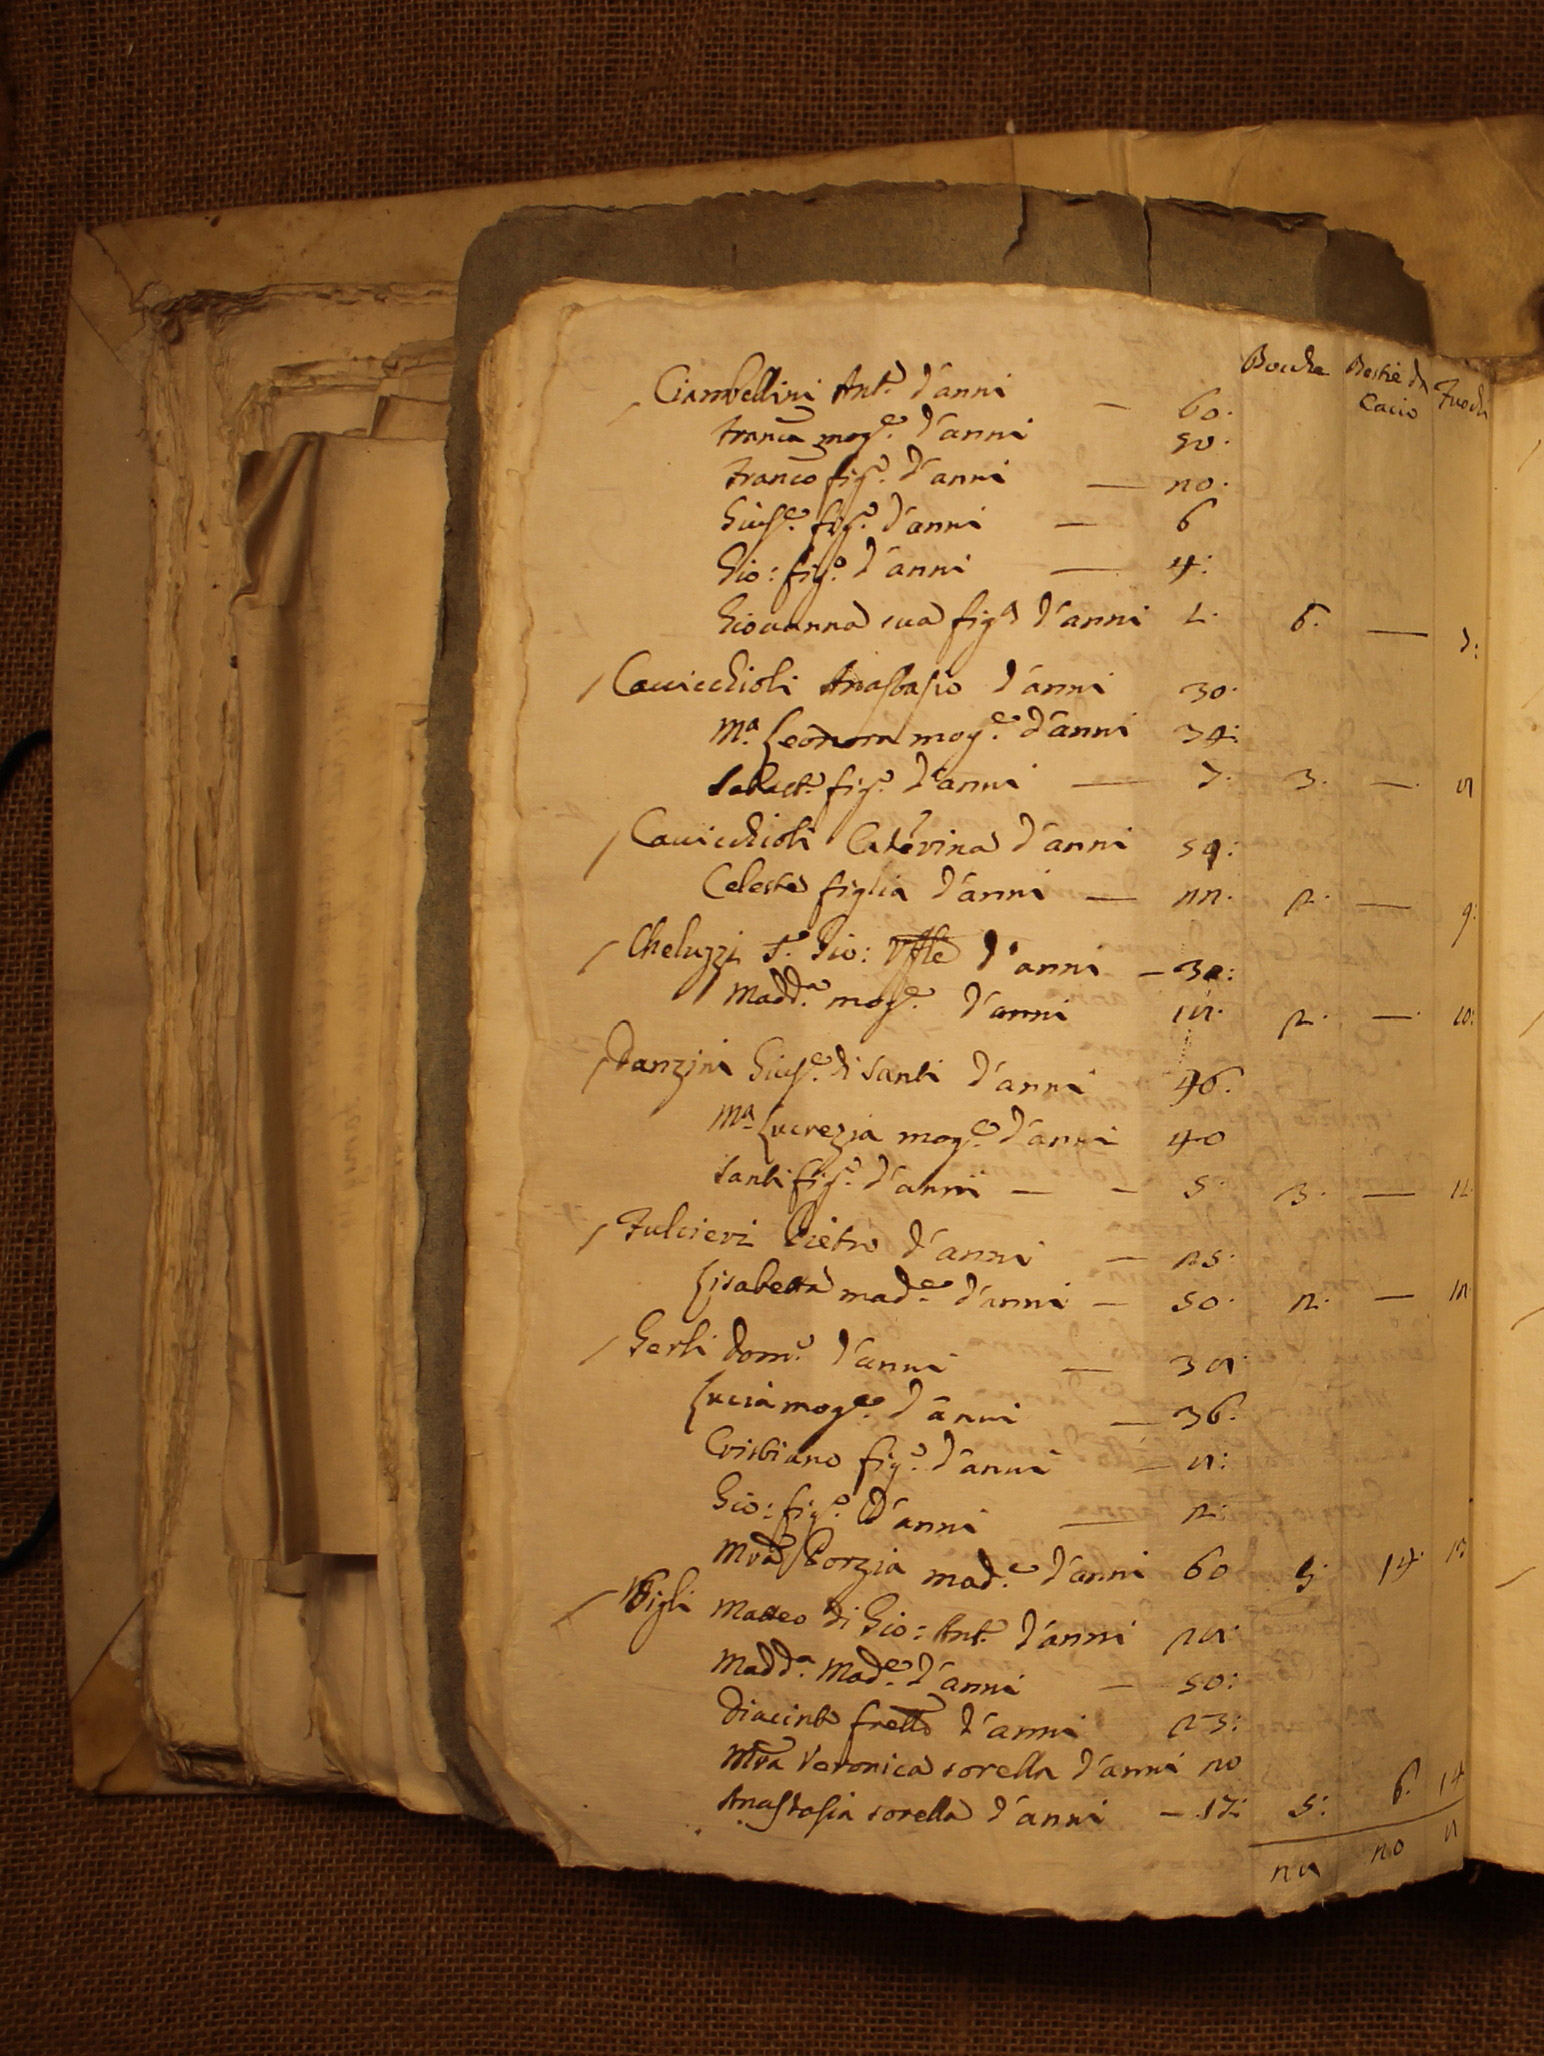 Bocche Bestie da Cacio Fuochi
Ciambellini Ant.o d'anni — 60.
Fran.ca mog.e d'anni 50.
Fran.co fig.o d'anni — 20.
Gius.e fig.o d'anni — 6
Gio: fig.o d'anni — 4:
Giovanna sua fig.a d'anni 1. 6. — 7:
Cavicchioli Anastasio d'anni 30.
M.a Leonora mog.e d'anni 34:
Sebast.o fig.o d'anni — 7. 3. — 8
Cavicchioli Caterina d'anni 59:
Celeste figlia d'anni — 22. 2. — 9:
Cheluzzi S.r Gio: d'anni — 30:
Madd.a mog.e d'anni 18. 2. — 10:
Danzini Gius.e di Santi d'anni 46.
M.a Lucrezia mog.e d'anni 40
Santi fig.o d'anni — — 5. 3. — 11.
Fulcieri Pietro d'anni — 25.
Lisabetta mad.e d'anni — 50. 2. — 12
Gerli Dom.o d'anni — 38.
Lucia mog.e d'anni — 36.
Cristiano fig.o d'anni — 8:
Gio: fig.o d'anni — 2:
Porzia mad.e d'anni 60 5. 14. 13
Matteo di Gio: Ant.o d'anni 28.
Madd.a Mad.e d'anni — 50:
Diacinto fretto d'anni 23:
Veronica sorella d'anni 20
Anastasia sorella d'anni — 17: 5: 6. 14
28 20 8